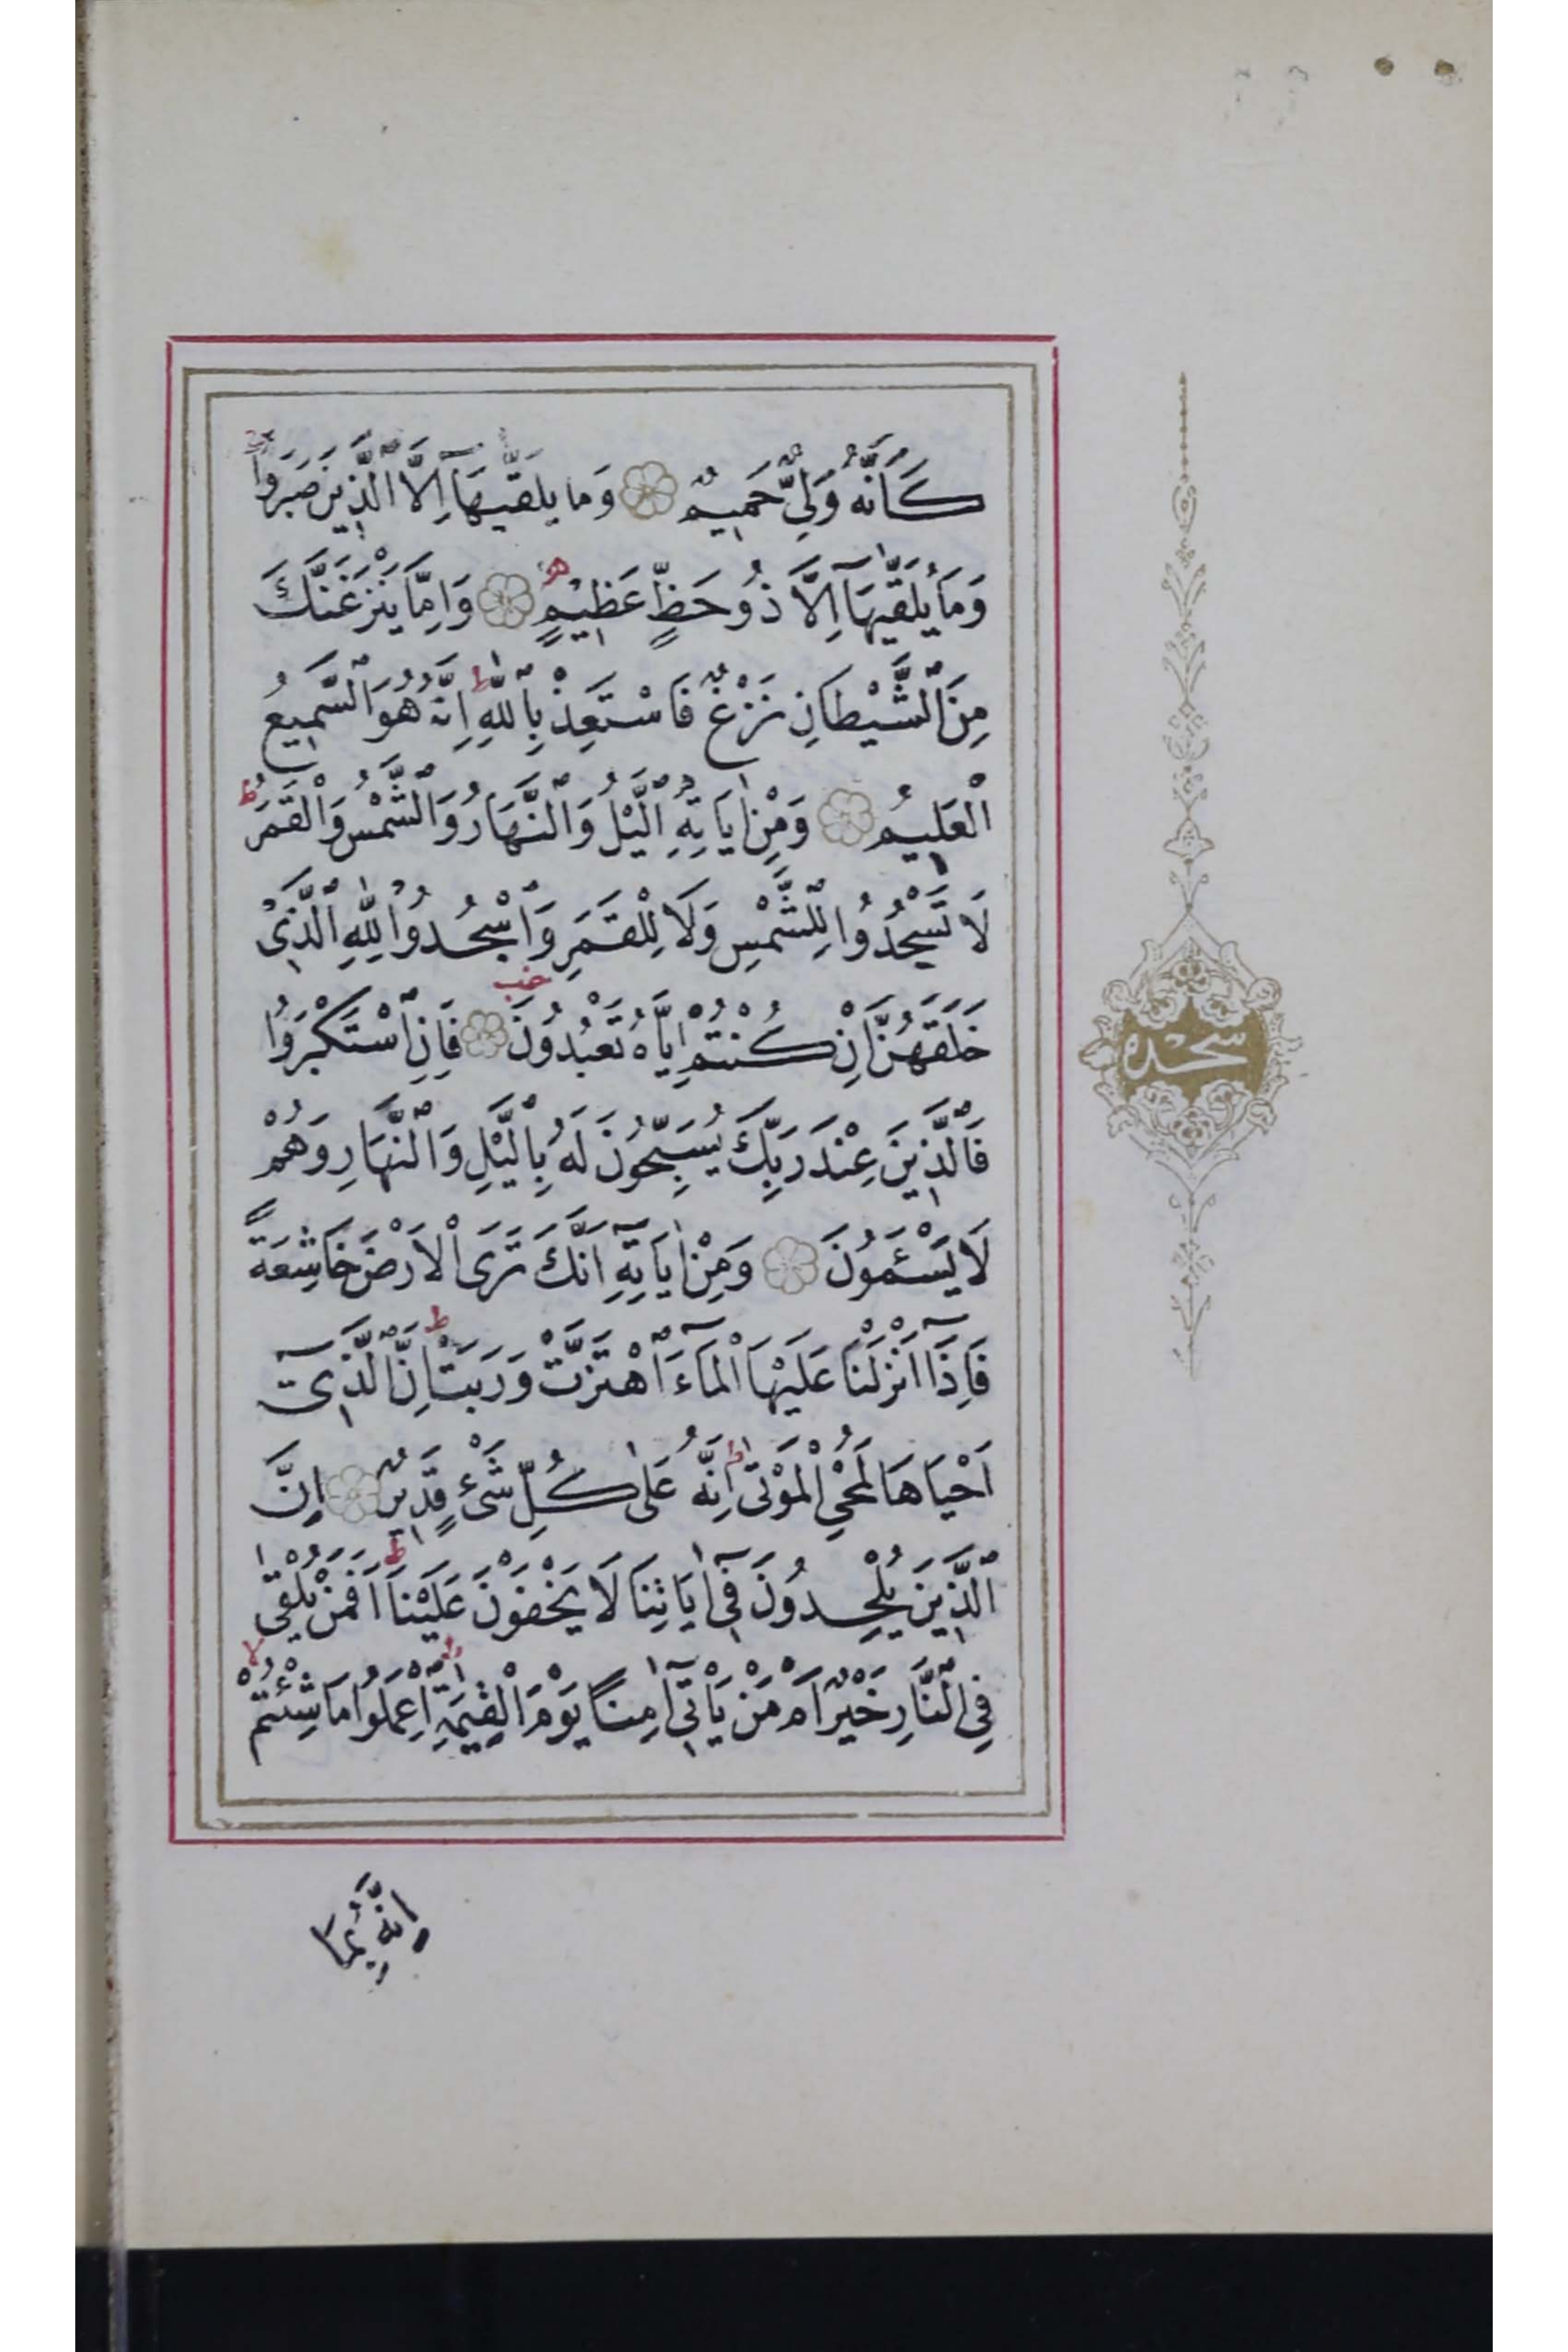 كَاَنَّهُ وَلِىٌّ حَمِيمٌ وَمَا يُلَقّٰيهَٓا اِلَّا الَّذِينَ صَبَرُواۚ
وَمَا يُلَقّٰيهَٓا اِلَّا ذُوحَظٍّ عَظِيمٍ وَاِمَّا يَنْزَغَنَّكَ
مِنَ الشَّيْطَانِ نَزْغٌ فَاسْتَعِذْ بِاللّٰهِ ط اِنَّهُ هُوَ السَّمِيعُ
الْعَلِيمُ وَمِنْ اٰيَاتِهِ الَّيْلُ وَالنَّهَارُ وَالشَّمْسُ وَالْقَمَرُ ط
لَا تَسْجُدُوا لِلشَّمْسِ وَلَا لِلْقَمَرِ وَاسْجُدُوا لِلّٰهِ الَّذِى
خَلَقَهُنَّ اِنْ كُنْتُمْ اِيَّاهُ تَعْبُدُونَ فَاِنِ اسْتَكْبَرُوا
سجده
فَالَّذِينَ عِنْدَ رَبِّكَ يُسَبِّحُونَ لَهُ بِالَّيْلِ وَالنَّهَارِ وَهُمْ
لَا يَسْـَٔمُونَ وَمِنْ اٰيَاتِهِٓ اَنَّكَ تَرَى الْاَرْضَ خَاشِعَةً
فَاِذَٓا اَنْزَلْنَا عَلَيْهَا الْمَٓاءَ اهْتَزَّتْ وَرَبَتْ ط اِنَّ الَّذِىٓ
اَحْيَاهَا لَمُحْىِ الْمَوْتٰى ط اِنَّهُ عَلٰى كُلِّ شَىْءٍ قَدِيرٌ اِنَّ
الَّذِينَ يُلْحِدُونَ فِىٓ اٰيَاتِنَا لَا يَخْفَوْنَ عَلَيْنَا ط اَفَمَنْ يُلْقٰى
فِى النَّارِ خَيْرٌ اَمْ مَنْ يَاْتِىٓ اٰمِنًا يَوْمَ الْقِيٰمَةِ ط اِعْمَلُوا مَا شِئْتُمْ لا
اِنَّهُ بِمَا